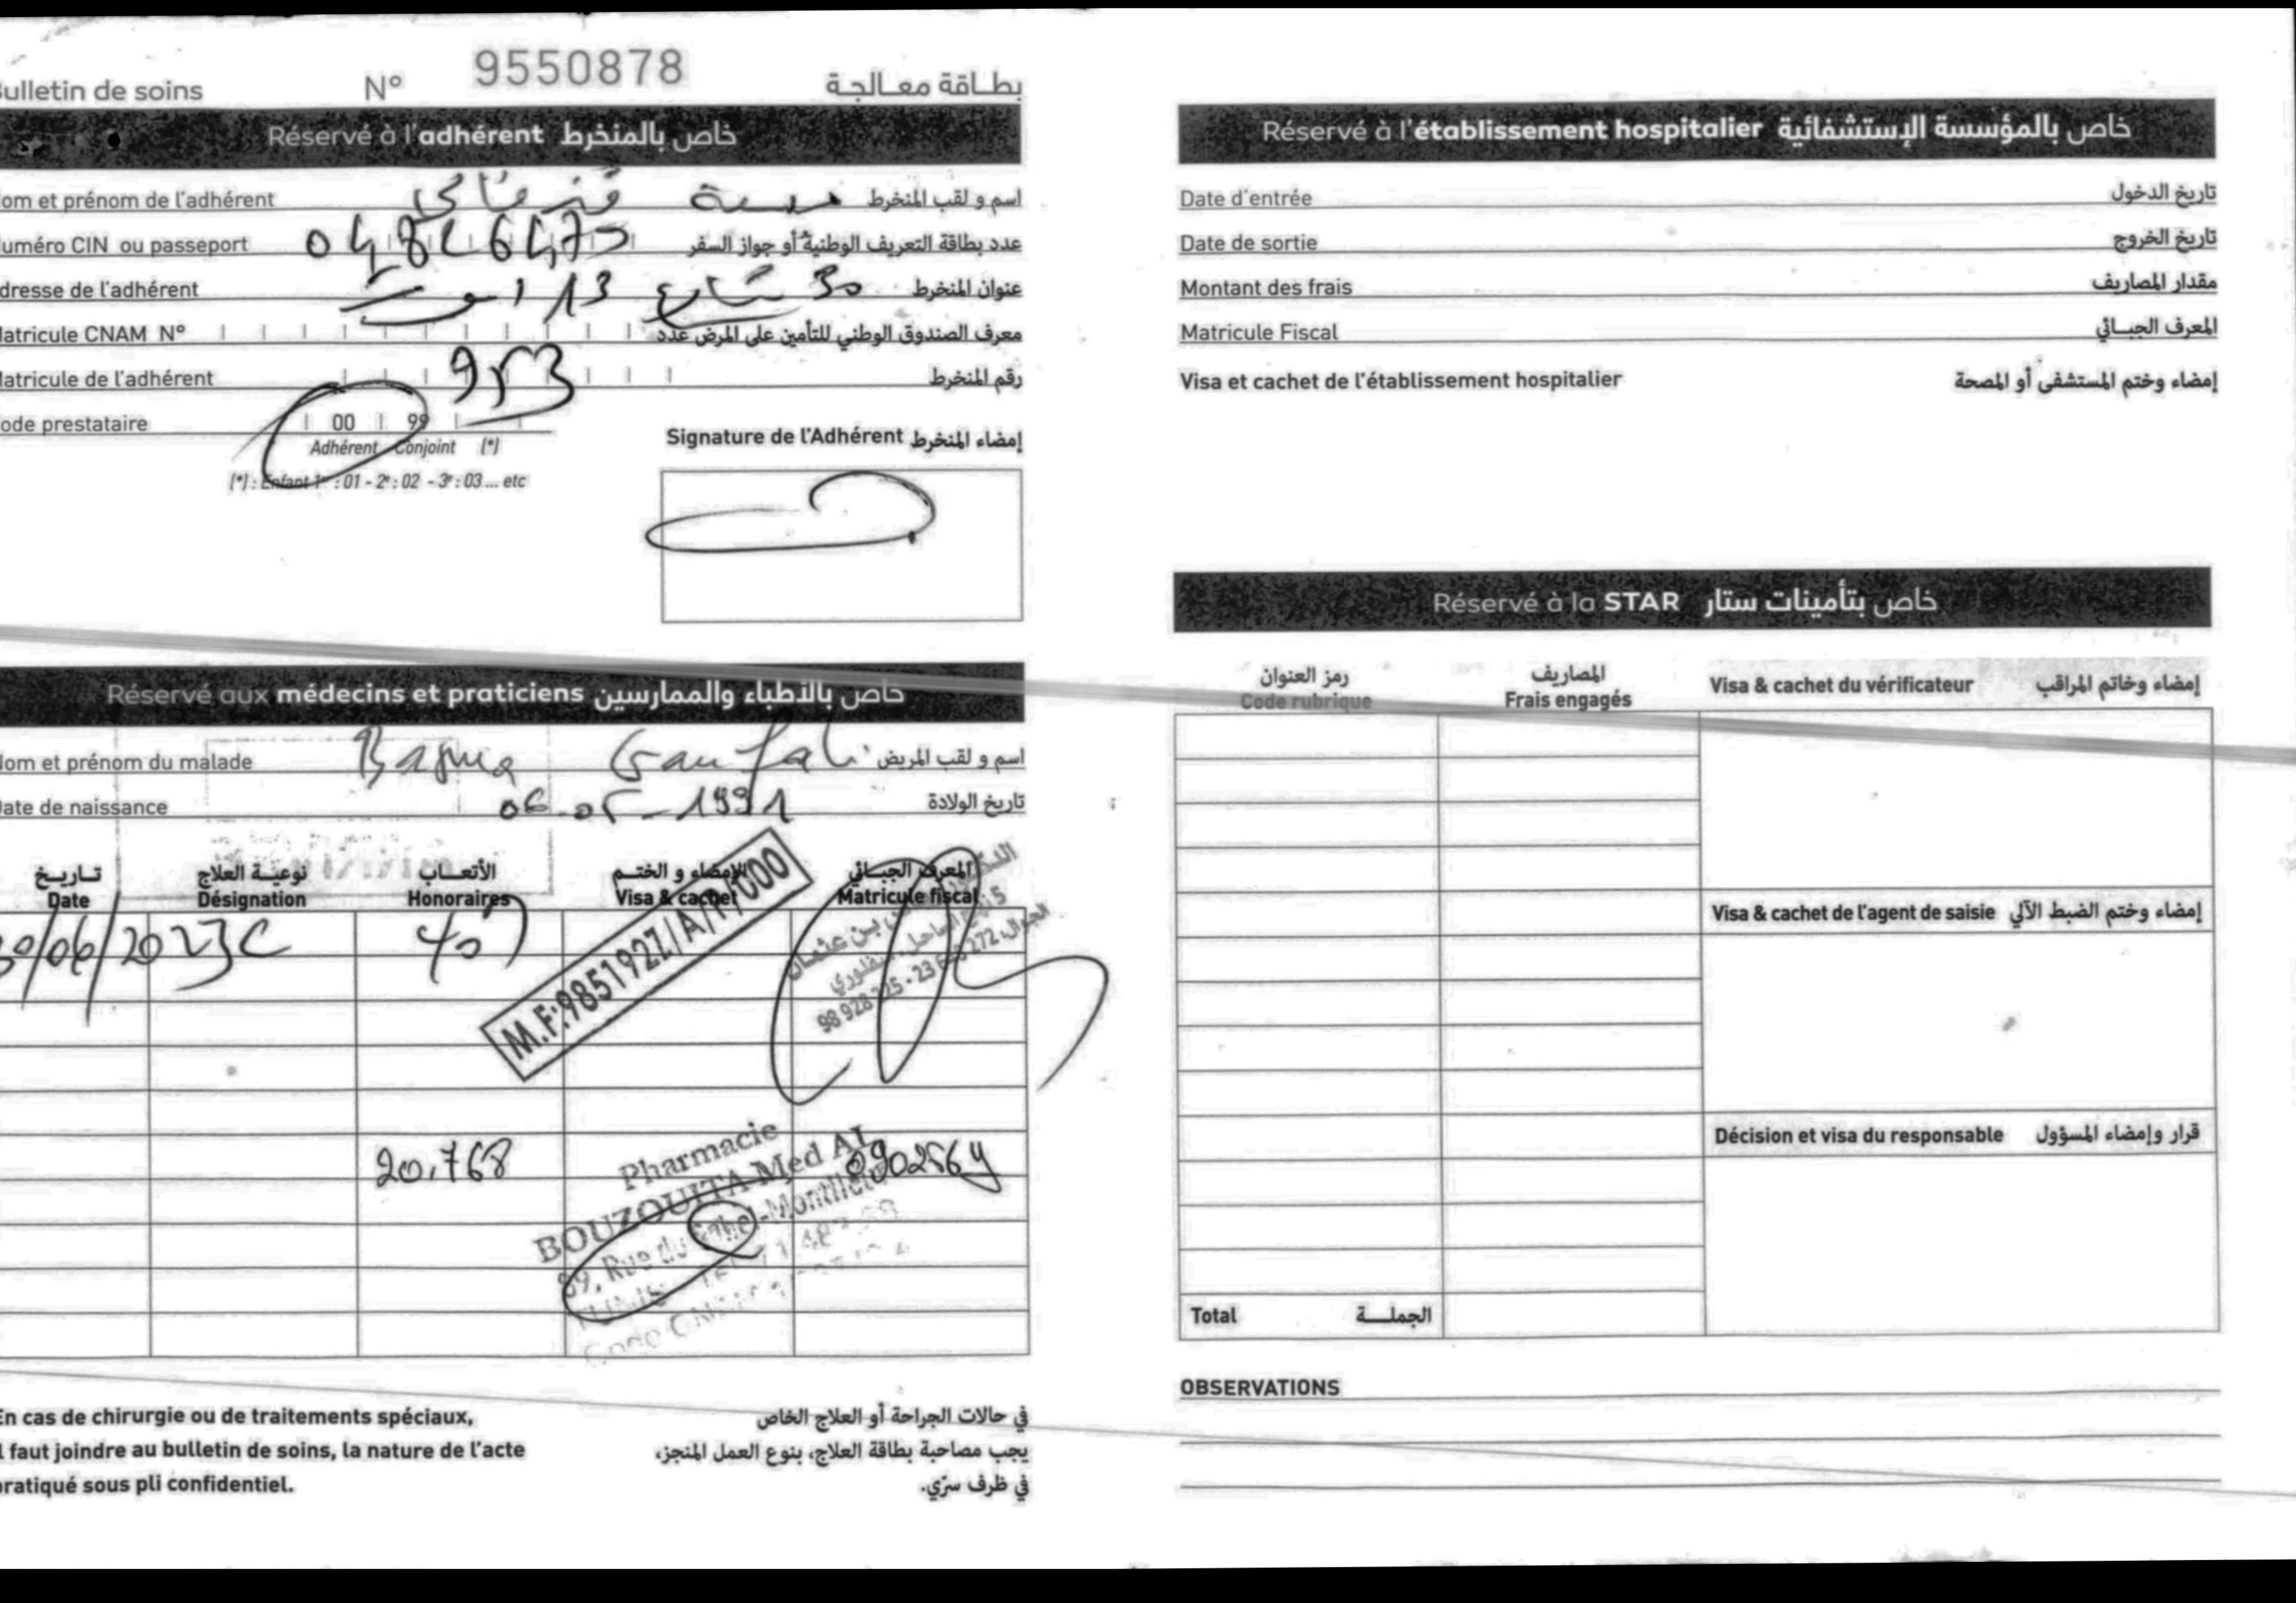 ulletin de soins N° 9550878 بطاقة معالجة
Réservé à l'adhérent خاص بالمنخرط
om et prénom de l'adhérent اسم و لقب المنخرط
uméro CIN ou passeport عدد بطاقة التعريف الوطنية أو جواز السفر
dresse de l'adhérent 13 شارع 30 عنوان المنخرط
atricule CNAM N° معرف الصندوق الوطني للتأمين على المرض عدد
atricule de l'adhérent 953 رقم المنخرط
ode prestataire 00 99
Adhérent Conjoint (*)
(*) : Enfant 1er : 01 - 2e : 02 - 3e : 03 ... etc
Signature de l'Adhérent إمضاء المنخرط
Réservé aux médecins et praticiens خاص بالأطباء والممارسين
om et prénom du malade Basma اسم و لقب المريض
ate de naissance 06-05-1991 تاريخ الولادة
تاريخ نوعية العلاج الأتعاب الإمضاء و الختم المعرف الجبائي
Date Désignation Honoraires Visa & cachet Matricule fiscal
30/06/2023 C 40
M.F:985192Z/A/P/000
بن عثمان
5 نهج الساحل
20,768 0902564
Pharmacie
BOUZOUITA Med Al
89, Rue du Sahel-Montfleury
En cas de chirurgie ou de traitements spéciaux,
l faut joindre au bulletin de soins, la nature de l'acte
pratiqué sous pli confidentiel.
في حالات الجراحة أو العلاج الخاص
يجب مصاحبة بطاقة العلاج، بنوع العمل المنجز،
في ظرف سرّي.
Réservé à l'établissement hospitalier خاص بالمؤسسة الإستشفائية
Date d'entrée تاريخ الدخول
Date de sortie تاريخ الخروج
Montant des frais مقدار المصاريف
Matricule Fiscal المعرف الجبائي
Visa et cachet de l'établissement hospitalier إمضاء وختم المستشفى أو المصحة
Réservé à la STAR خاص بتأمينات ستار
رمز العنوان المصاريف
Code rubrique Frais engagés
Visa & cachet du vérificateur إمضاء وخاتم المراقب
Visa & cachet de l'agent de saisie إمضاء وختم الضبط الآلي
Décision et visa du responsable قرار وإمضاء المسؤول
Total الجملة
OBSERVATIONS